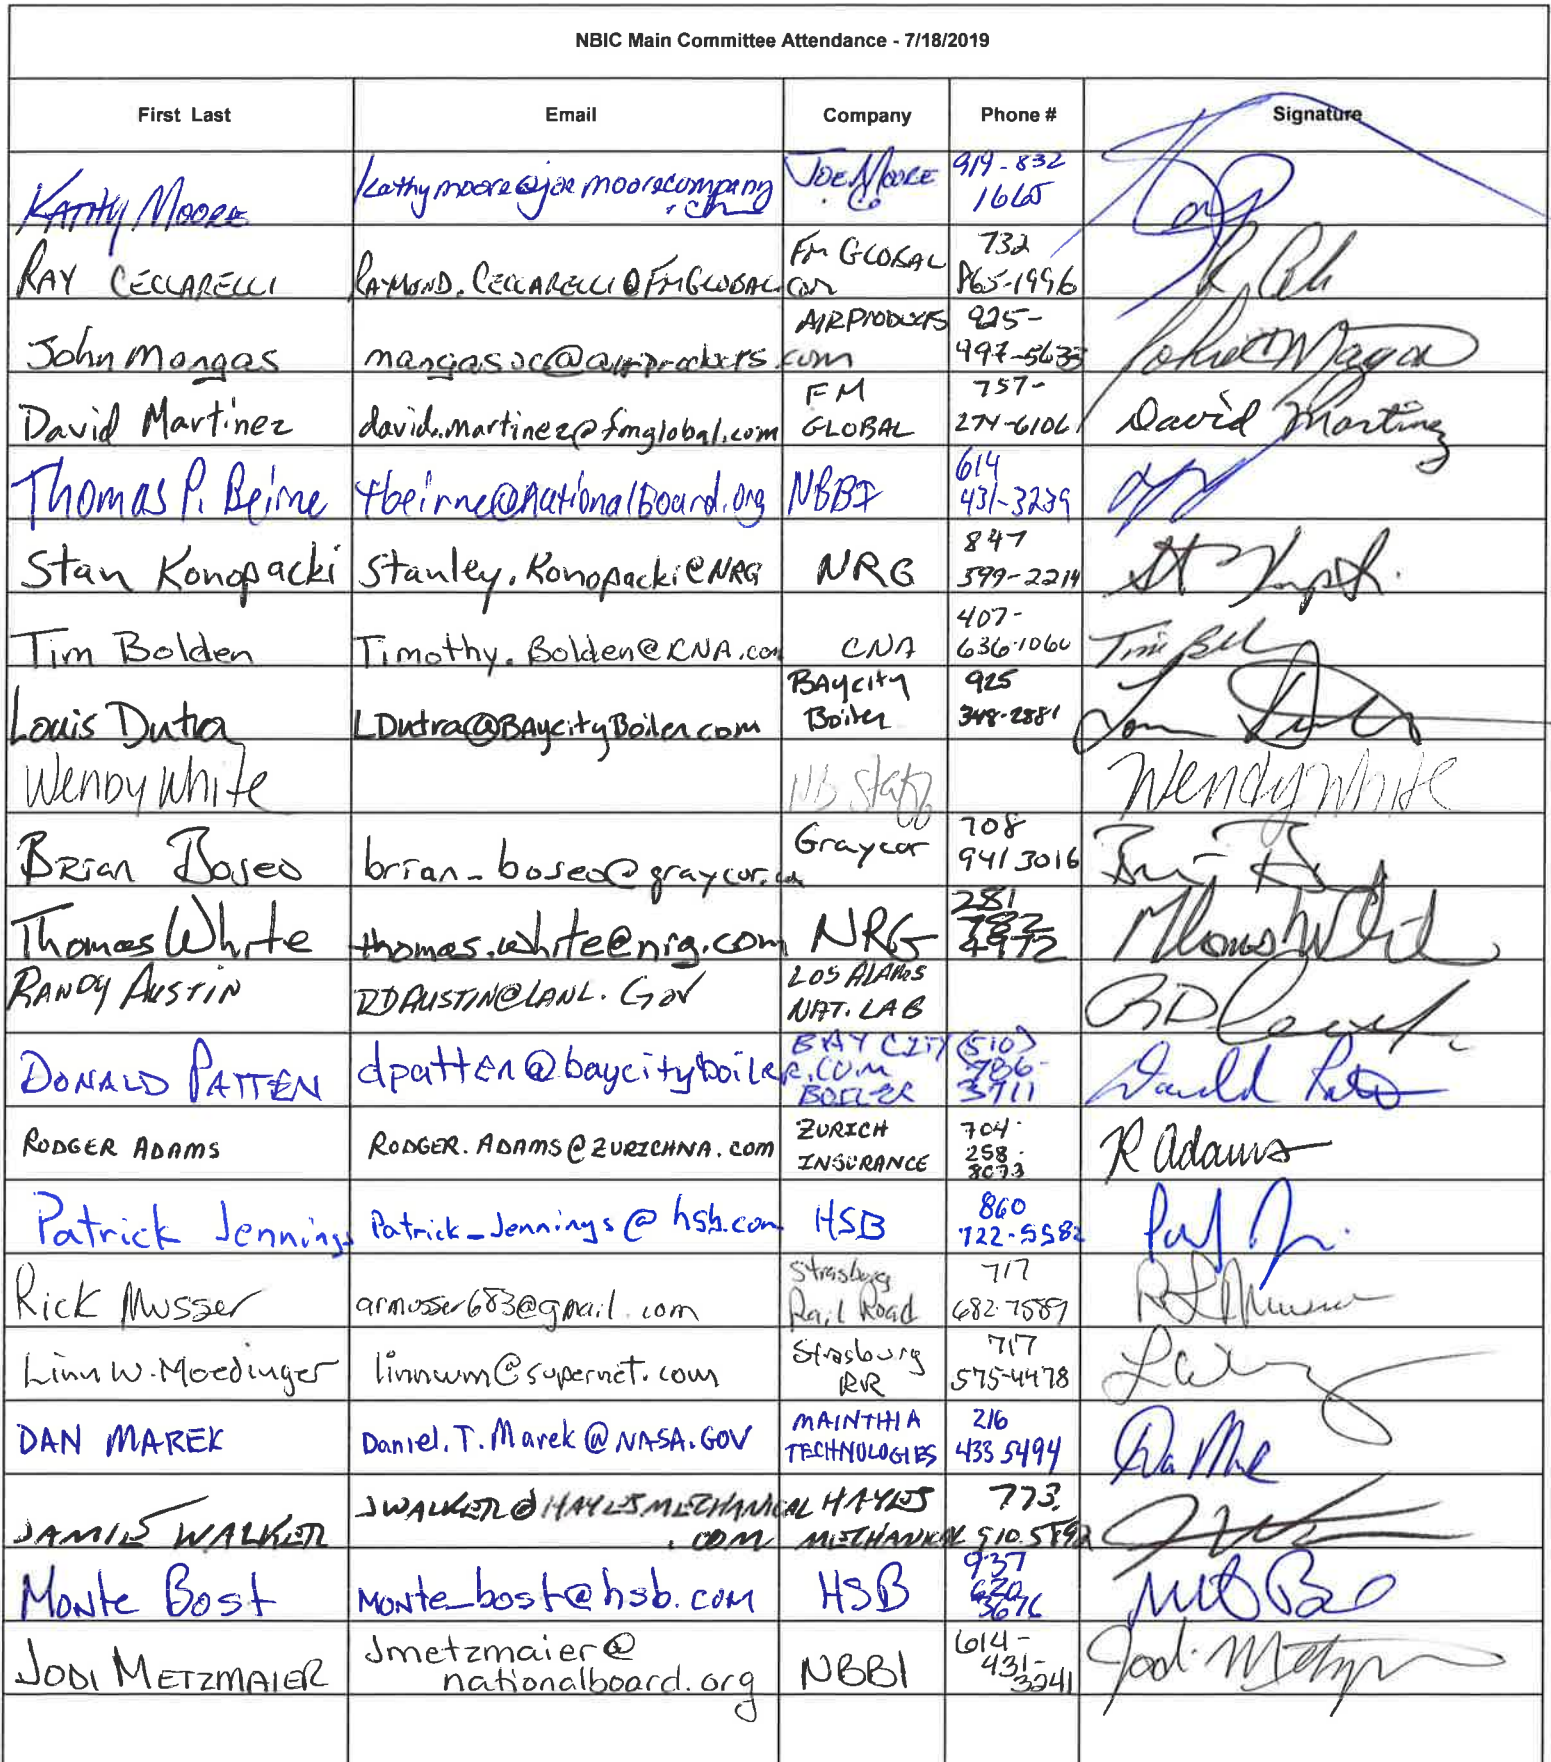 NBIC Main Committee Attendance - 7/18/2019
First Last Email Company Phone # Signature
KATHY MOORE kathymoore@joemoorecompany JOE MOORE 919-832
Co 1665
RAY CECCARELLI RAYMOND.CECCARELLI@FMGLOBAL. FM GLOBAL 732
com 865-1996
John Mangas mangasjc@airproducts.com AIRPRODUCTS 925-
497-5633
David Martinez david.martinez@fmglobal.com FM 757- David Martinez
GLOBAL 274-6106
Thomas P. Beirne tbeirne@nationalboard.org NBBI 614
431-3239
Stan Konopacki Stanley.Konopacki@NRG NRG 847
599-2214
Tim Bolden Timothy.Bolden@CNA.com CNA 407-
636-1060
Louis Dutra LDutra@BAycityBoiler.com BAycity 925
Boiler 348-2881
Wendy White NB Staff Wendy White
Brian Boseo brian_boseo@graycor.com Graycor 708
941 3016
Thomas White thomas.white@nrg.com NRG 281
782
4972
RANDY AUSTIN RDAUSTIN@LANL.GOV LOS ALAMOS
NAT. LAB
DONALD PATTEN dpatten@baycityboiler.com BAY CITY (510)
BOILER 786-
3711
RODGER ADAMS RODGER.ADAMS@ZURICHNA.com ZURICH 704- R Adams
INSURANCE 258-
8073
Patrick Jennings Patrick_Jennings@hsb.com HSB 860
722-5582
Rick Musser armusser683@gmail.com Strasburg 717
Rail Road 682-7589
Linn W. Moedinger linnwm@supernet.com Strasburg 717
RR 575-4478
DAN MAREK Daniel.T.Marek@NASA.GOV MAINTHIA 216
TECHNOLOGIES 433 5494
JAMIE WALKER JWALKER@HAYESMECHANICAL HAYES 773.
.COM MECHANICAL 910.5892
Monte Bost Monte_bost@hsb.com HSB 937
620
3676
JODI METZMAIER Jmetzmaier@ NBBI 614-
nationalboard.org 431-
3241